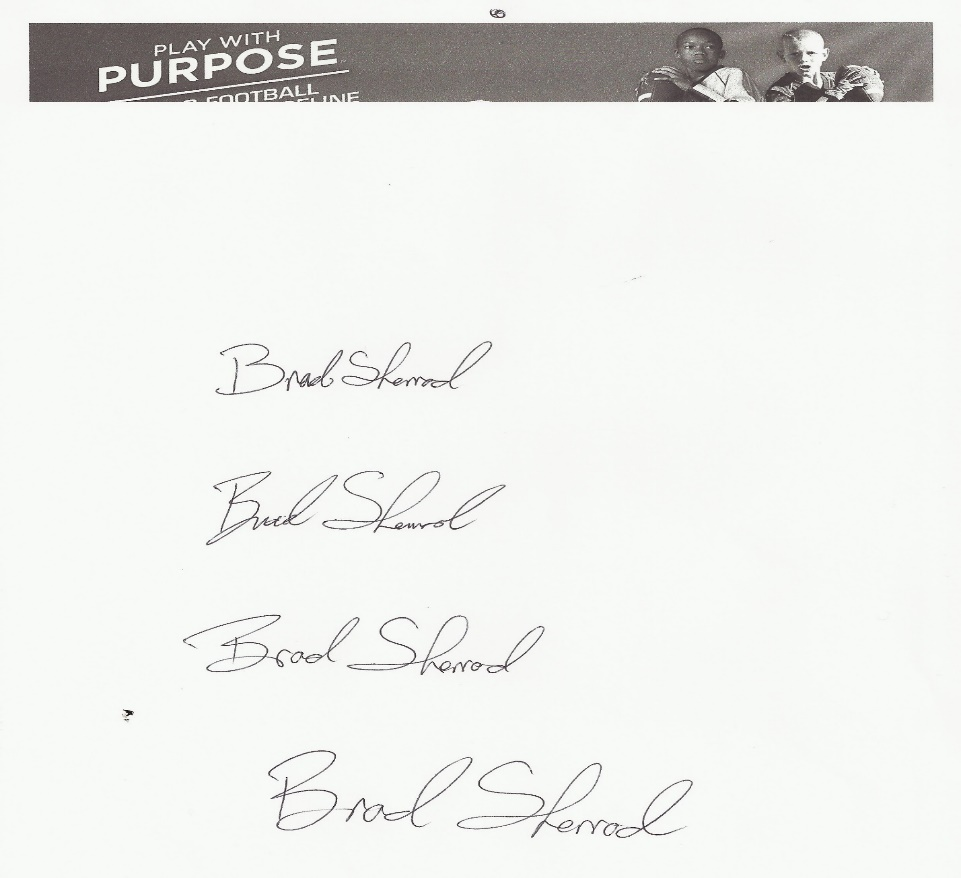 PLAY WITH
PURPOSE
FOOTBALL
Brad Sherrod
Brad Sherrod
Brad Sherrod
Brad Sherrod